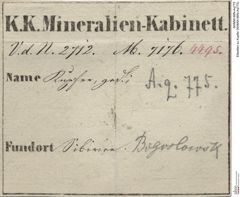 K.K. Mineralien-Kabinett.
V.d.N. 2712. M. 7176. 4495.
Name Kupfer, A.q. 775.
Fundort Sibirien. Bogoslowsk